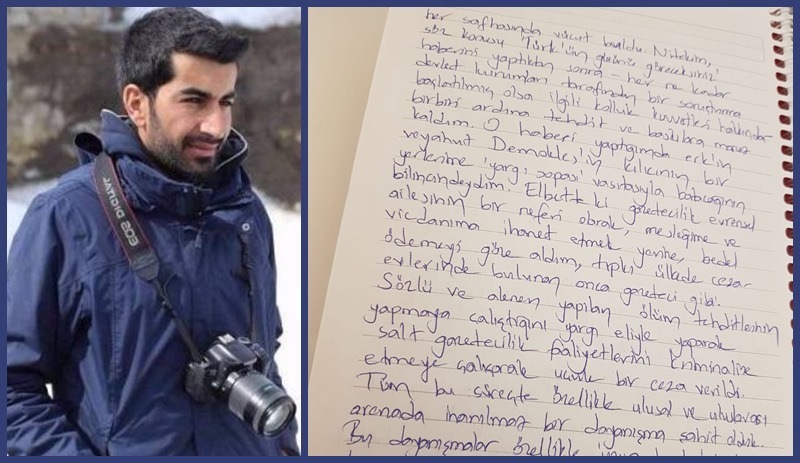 EOS DIGITAL
her safhasında vücut buldu. Nitekim,
söz konusu 'Türk'ün gücünü göreceksiniz'
haberini yaptıktan sonra – her ne kadar
devlet kurumları tarafından bir soruşturma
başlatılmış olsa ilgili kolluk kuvvetleri hakkında-
birbiri ardına tehdit ve baskılara maruz
kaldım. O haberi yaptığımda erk'in
veyahut Demokles'in kılıcının bir
yerlerime 'yargı sopası' vasıtasıyla batacağının
bilincindeydim. Elbette ki gazetecilik evrensel
ailesinin bir neferi olarak, mesleğime ve
vicdanıma ihanet etmek yerine, bedel
ödemeyi göze aldım, tıpkı ülkede ceza-
evlerinde bulunan onca gazeteci gibi.
Sözlü ve alenen yapılan ölüm tehditlerinin
yapmaya çalıştığını yargı eliyle yaparak
salt gazetecilik faaliyetlerini kriminalize
etmeye çalışarak ucube bir ceza verildi.
Tüm bu süreçte özellikle ulusal ve uluslarası
arenada inanılmaz bir dayanışma şahit oldum.
Bu dayanışmalar özellikle